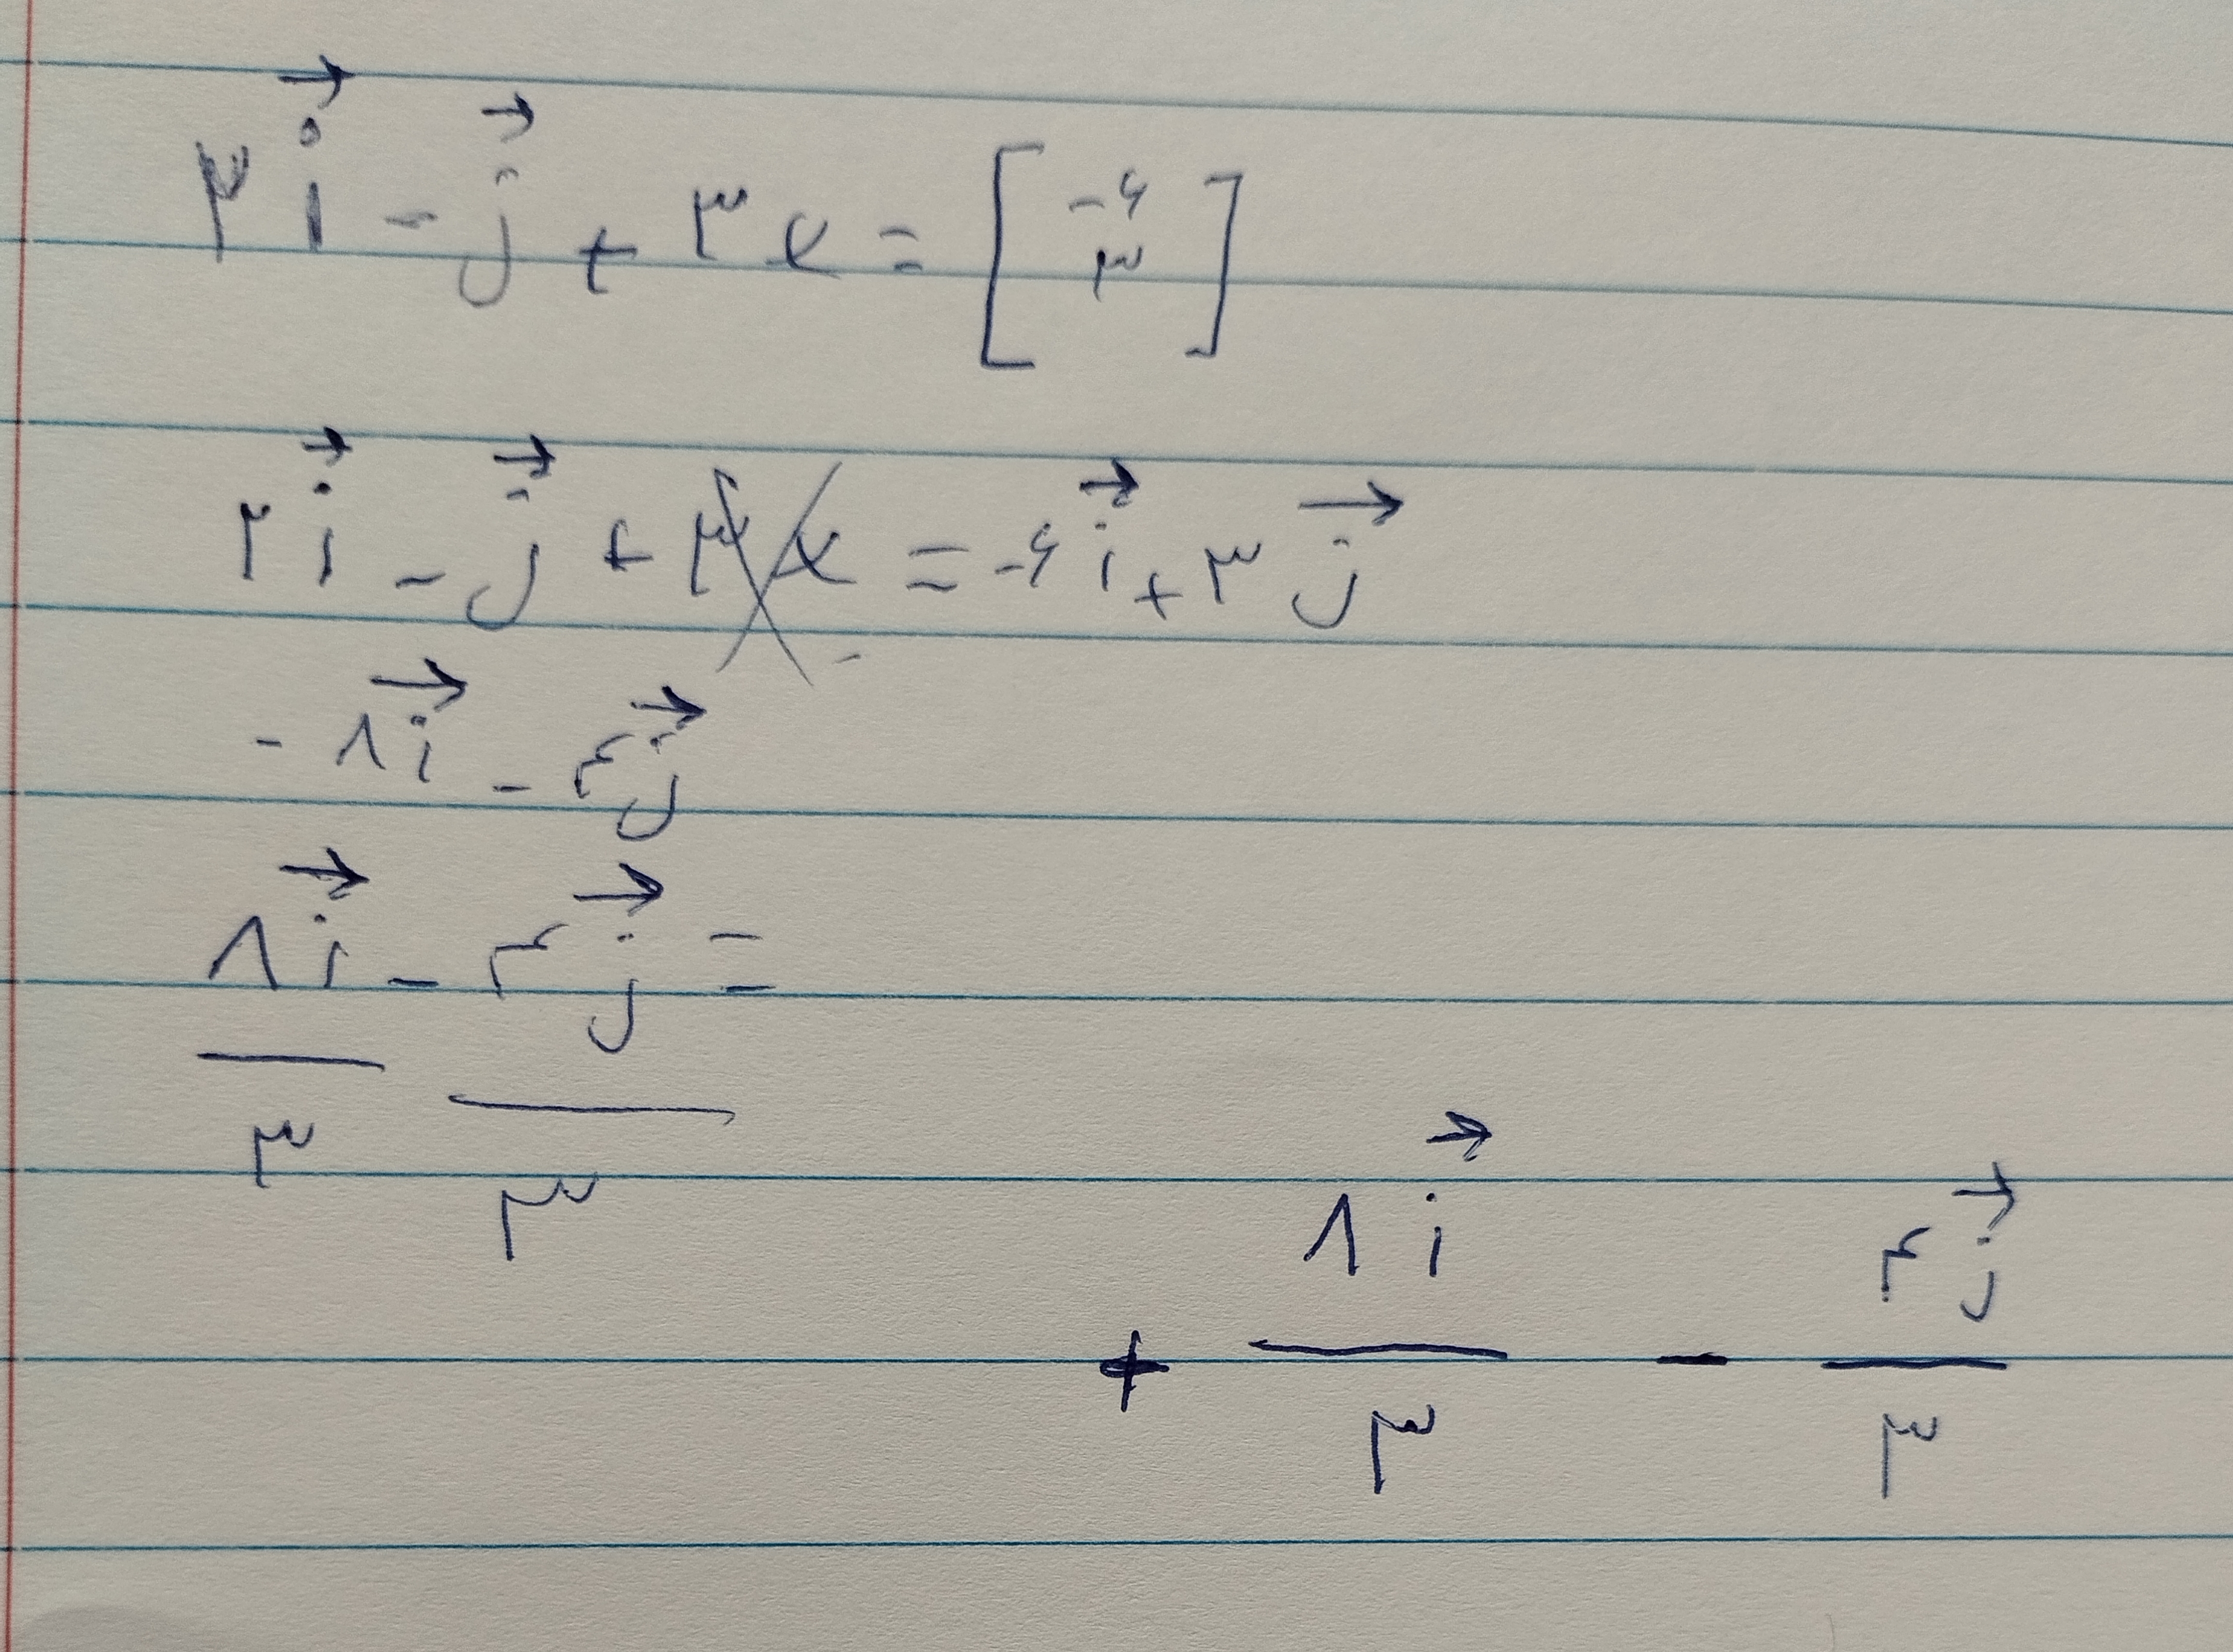 ۳i⃗ - j⃗ + ۳x = [-۶ ۳]
۲i⃗ - j⃗ + ۳x = -۶i⃗ + ۳j⃗
- ۸i⃗ - ۴j⃗
۸i⃗/۳ - ۴j⃗/۳ =
+ ۸i⃗/۳ - ۴j⃗/۳